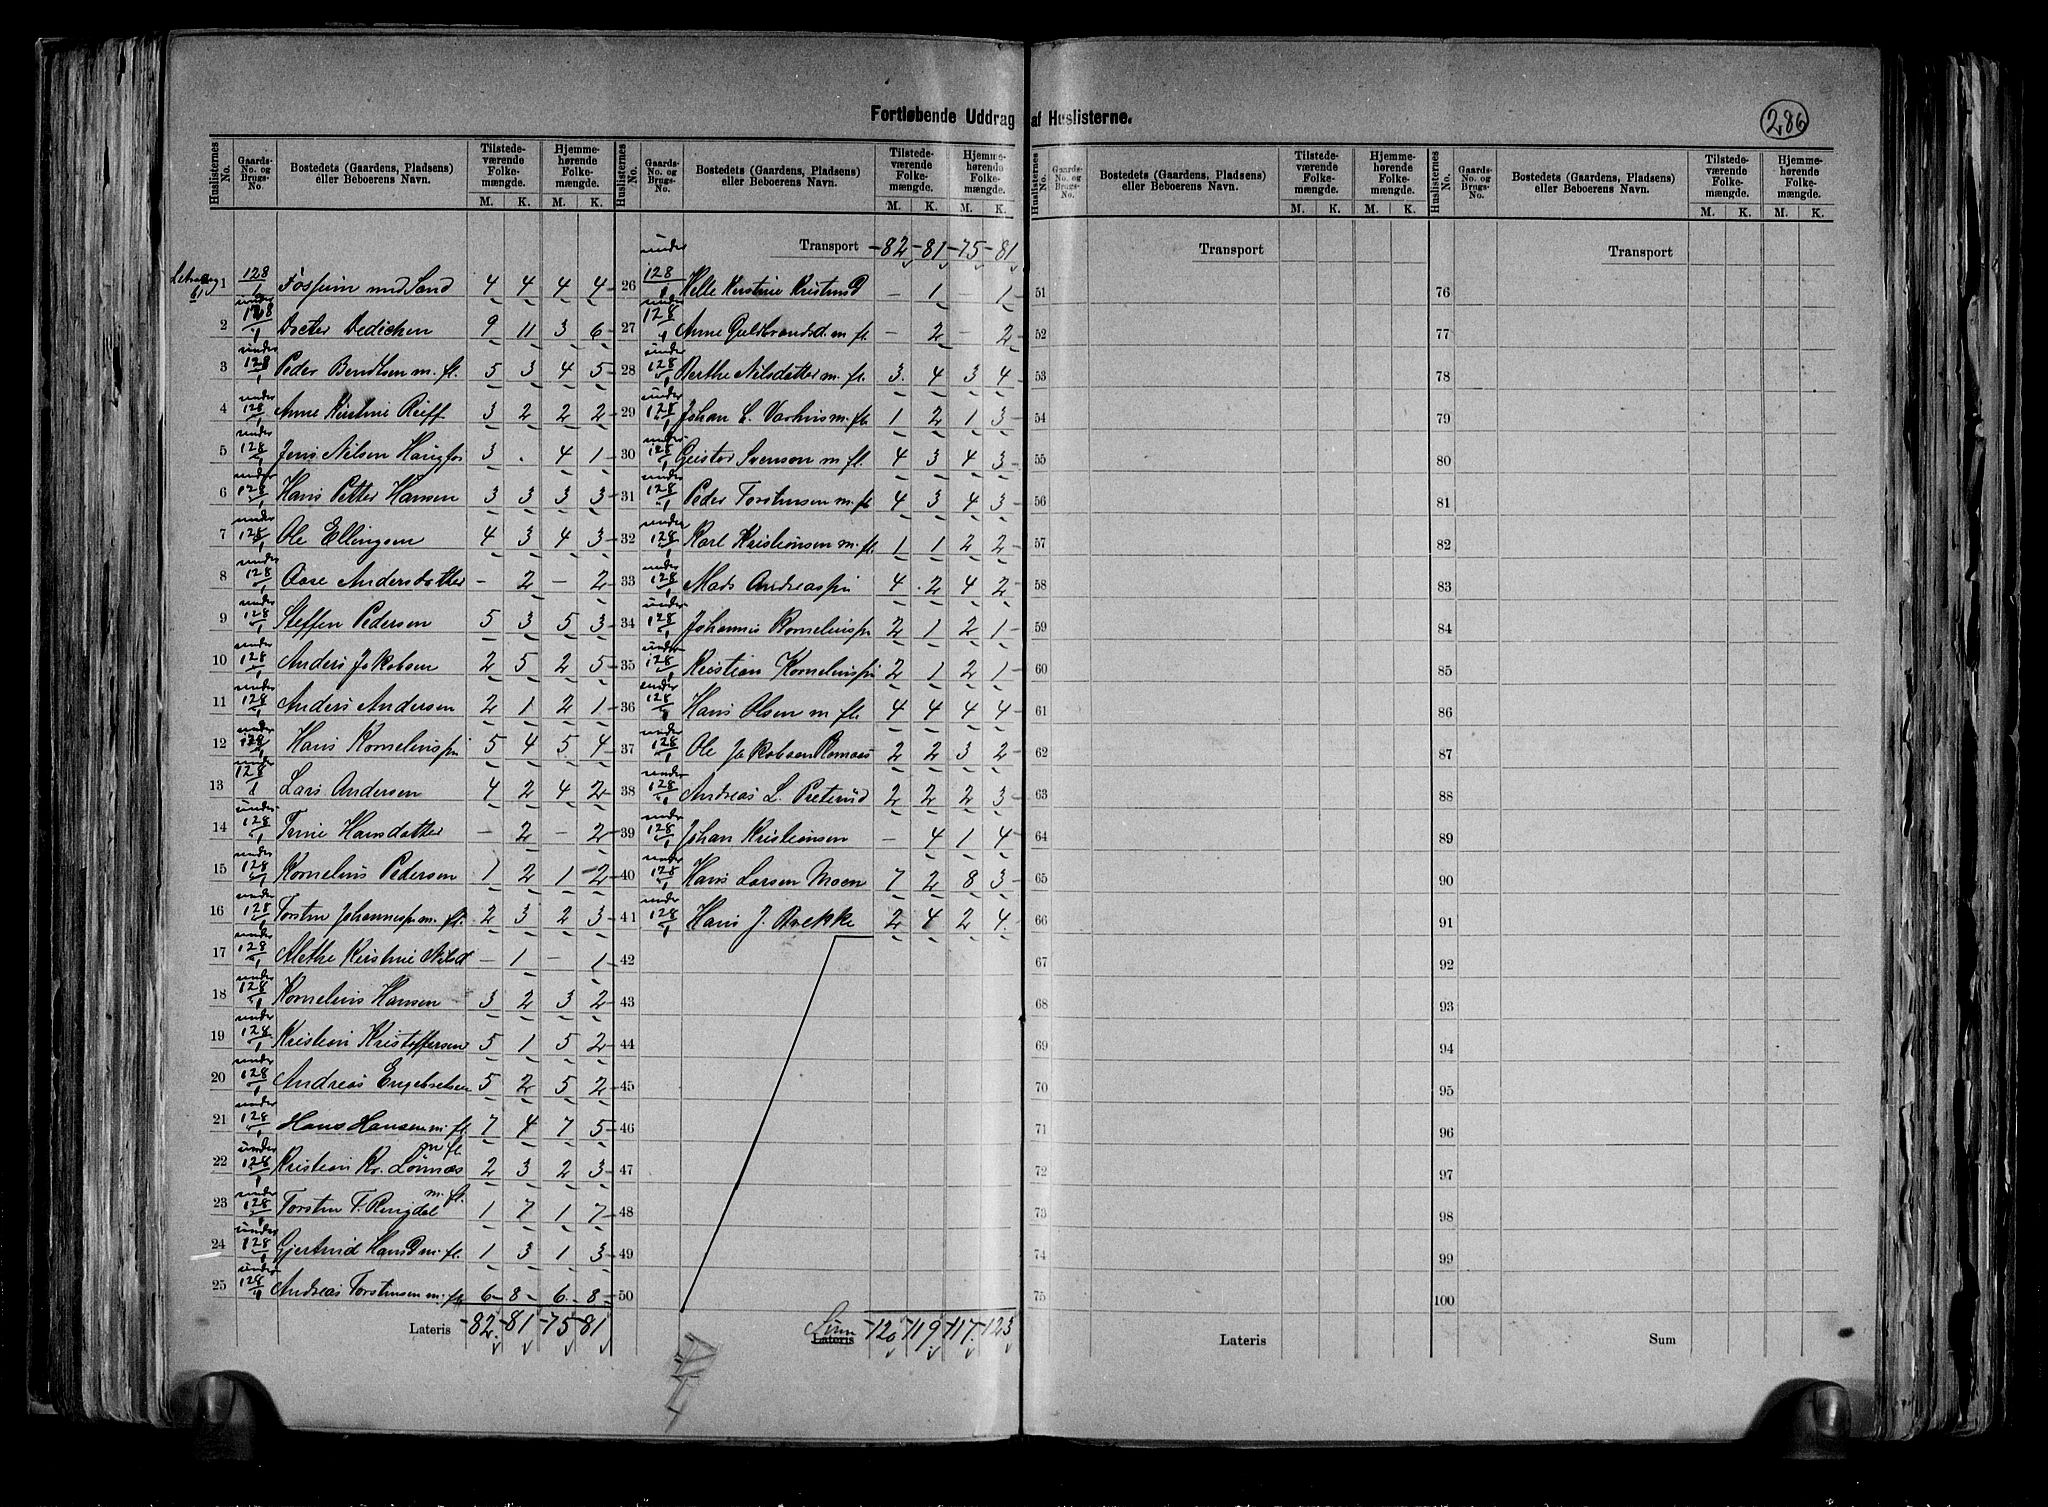 Fortløbende Uddrag af Huslisterne.
286
Huslisternes No. Gaards-No. og Brugs-No. Bostedets (Gaardens, Pladsens) eller Beboerens Navn. Tilstedeværende Folkemængde. M. K. Hjemmehørende Folkemængde. M. K.
1 128/1 Fossum med Sand 4 4 4 4
2 under 128/1 Doctor Dedichen 9 11 3 6
3 under 128/1 Peder Bendtsen m. fl. 5 3 4 5
4 under 128/1 Anne Kirstine Reiff 3 2 2 2
5 under 128/1 Jens Nilsen Haugfos 3 . 4 1
6 under 128/1 Hans Petter Hansen 3 3 3 3
7 under 128/1 Ole Ellingsen 4 3 4 3
8 under 128/1 Aase Andersdatter – 2 – 2
9 under 128/1 Steffen Pedersen 5 3 5 3
10 under 128/1 Anders Jakobsen 2 5 2 5
11 under 128/1 Anders Andersen 2 1 2 1
12 under 128/1 Hans Kornelius 5 4 5 4
13 under 128/1 Lars Andersen 4 2 4 2
14 under 128/1 Trine Hansdatter – 2 – 2
15 under 128/1 Kornelius Pedersen 1 2 1 2
16 under 128/1 Torsten Johannes m. fl. 2 3 2 3
17 under 128/1 Alethe Kirstine Nilsd – 1 – 1
18 under 128/1 Kornelius Hansen 3 2 3 2
19 under 128/1 Kristian Kristoffersen 5 1 5 2
20 under 128/1 Andreas Engebretsen 5 2 5 2
21 under 128/1 Hans Hansen m. fl. 7 4 7 5
22 under 128/1 Kristian Kr. Lønnæs m fl. 2 3 2 3
23 under 128/1 Torsten T. Ringdal m. fl. 1 7 1 7
24 under 128/1 Gjertrud HansD m. fl. 1 3 1 3
25 under 128/1 Andreas Torstensen m. fl. 6 8 6 8
Lateris 82 81 75 81
Huslisternes No. Gaards-No. og Brugs-No. Bostedets (Gaardens, Pladsens) eller Beboerens Navn. Tilstedeværende Folkemængde. M. K. Hjemmehørende Folkemængde. M. K.
Transport 82 81 75 81
26 under 128/1 Helle Kirstine KristensD – 1 1
27 under 128/1 Anne Guldbrandsd. m fl. – 2 – 2
28 under 128/1 Berthe Nilsdatter m. fl. 3 4 3 4
29 under 128/1 Johan m. fl. 1 2 1 3
30 under 128/1 Svenson m fl. 4 3 4 3
31 under 128/1 Peder Torstensen m. fl 4 3 4 3
32 under 128/1 Karl Kristiansen m. fl 1 1 2 2
33 under 128/1 Mads Andreas 4 2 4 2
34 under 128/1 Johannes Kornelius 2 1 2 1
35 under 128/1 Kristian Kornelius 2 1 2 1
36 under 128/1 Hans Olsen m fl. 4 4 4 4
37 under 128/1 Ole Jakobsen 2 2 3 2
38 under 128/1 Andreas L. 2 2 2 3
39 under 128/1 Johan Kristiansen – 4 1 4
40 under 128/1 Hans Larsen Moen 7 2 8 3
41 under 128/1 Hans J. Brekke 2 4 2 4
42
43
44
45
46
47
48
49
50
Lateris Sum 120 119 117 123
Huslisternes No. Gaards-No. og Brugs-No. Bostedets (Gaardens, Pladsens) eller Beboerens Navn. Tilstedeværende Folkemængde. M. K. Hjemmehørende Folkemængde. M. K.
Transport
51
52
53
54
55
56
57
58
59
60
61
62
63
64
65
66
67
68
69
70
71
72
73
74
75
Lateris
Huslisternes No. Gaards-No. og Brugs-No. Bostedets (Gaardens, Pladsens) eller Beboerens Navn. Tilstedeværende Folkemængde. M. K. Hjemmehørende Folkemængde. M. K.
Transport
76
77
78
79
80
81
82
83
84
85
86
87
88
89
90
91
92
93
94
95
96
97
98
99
100
Sum